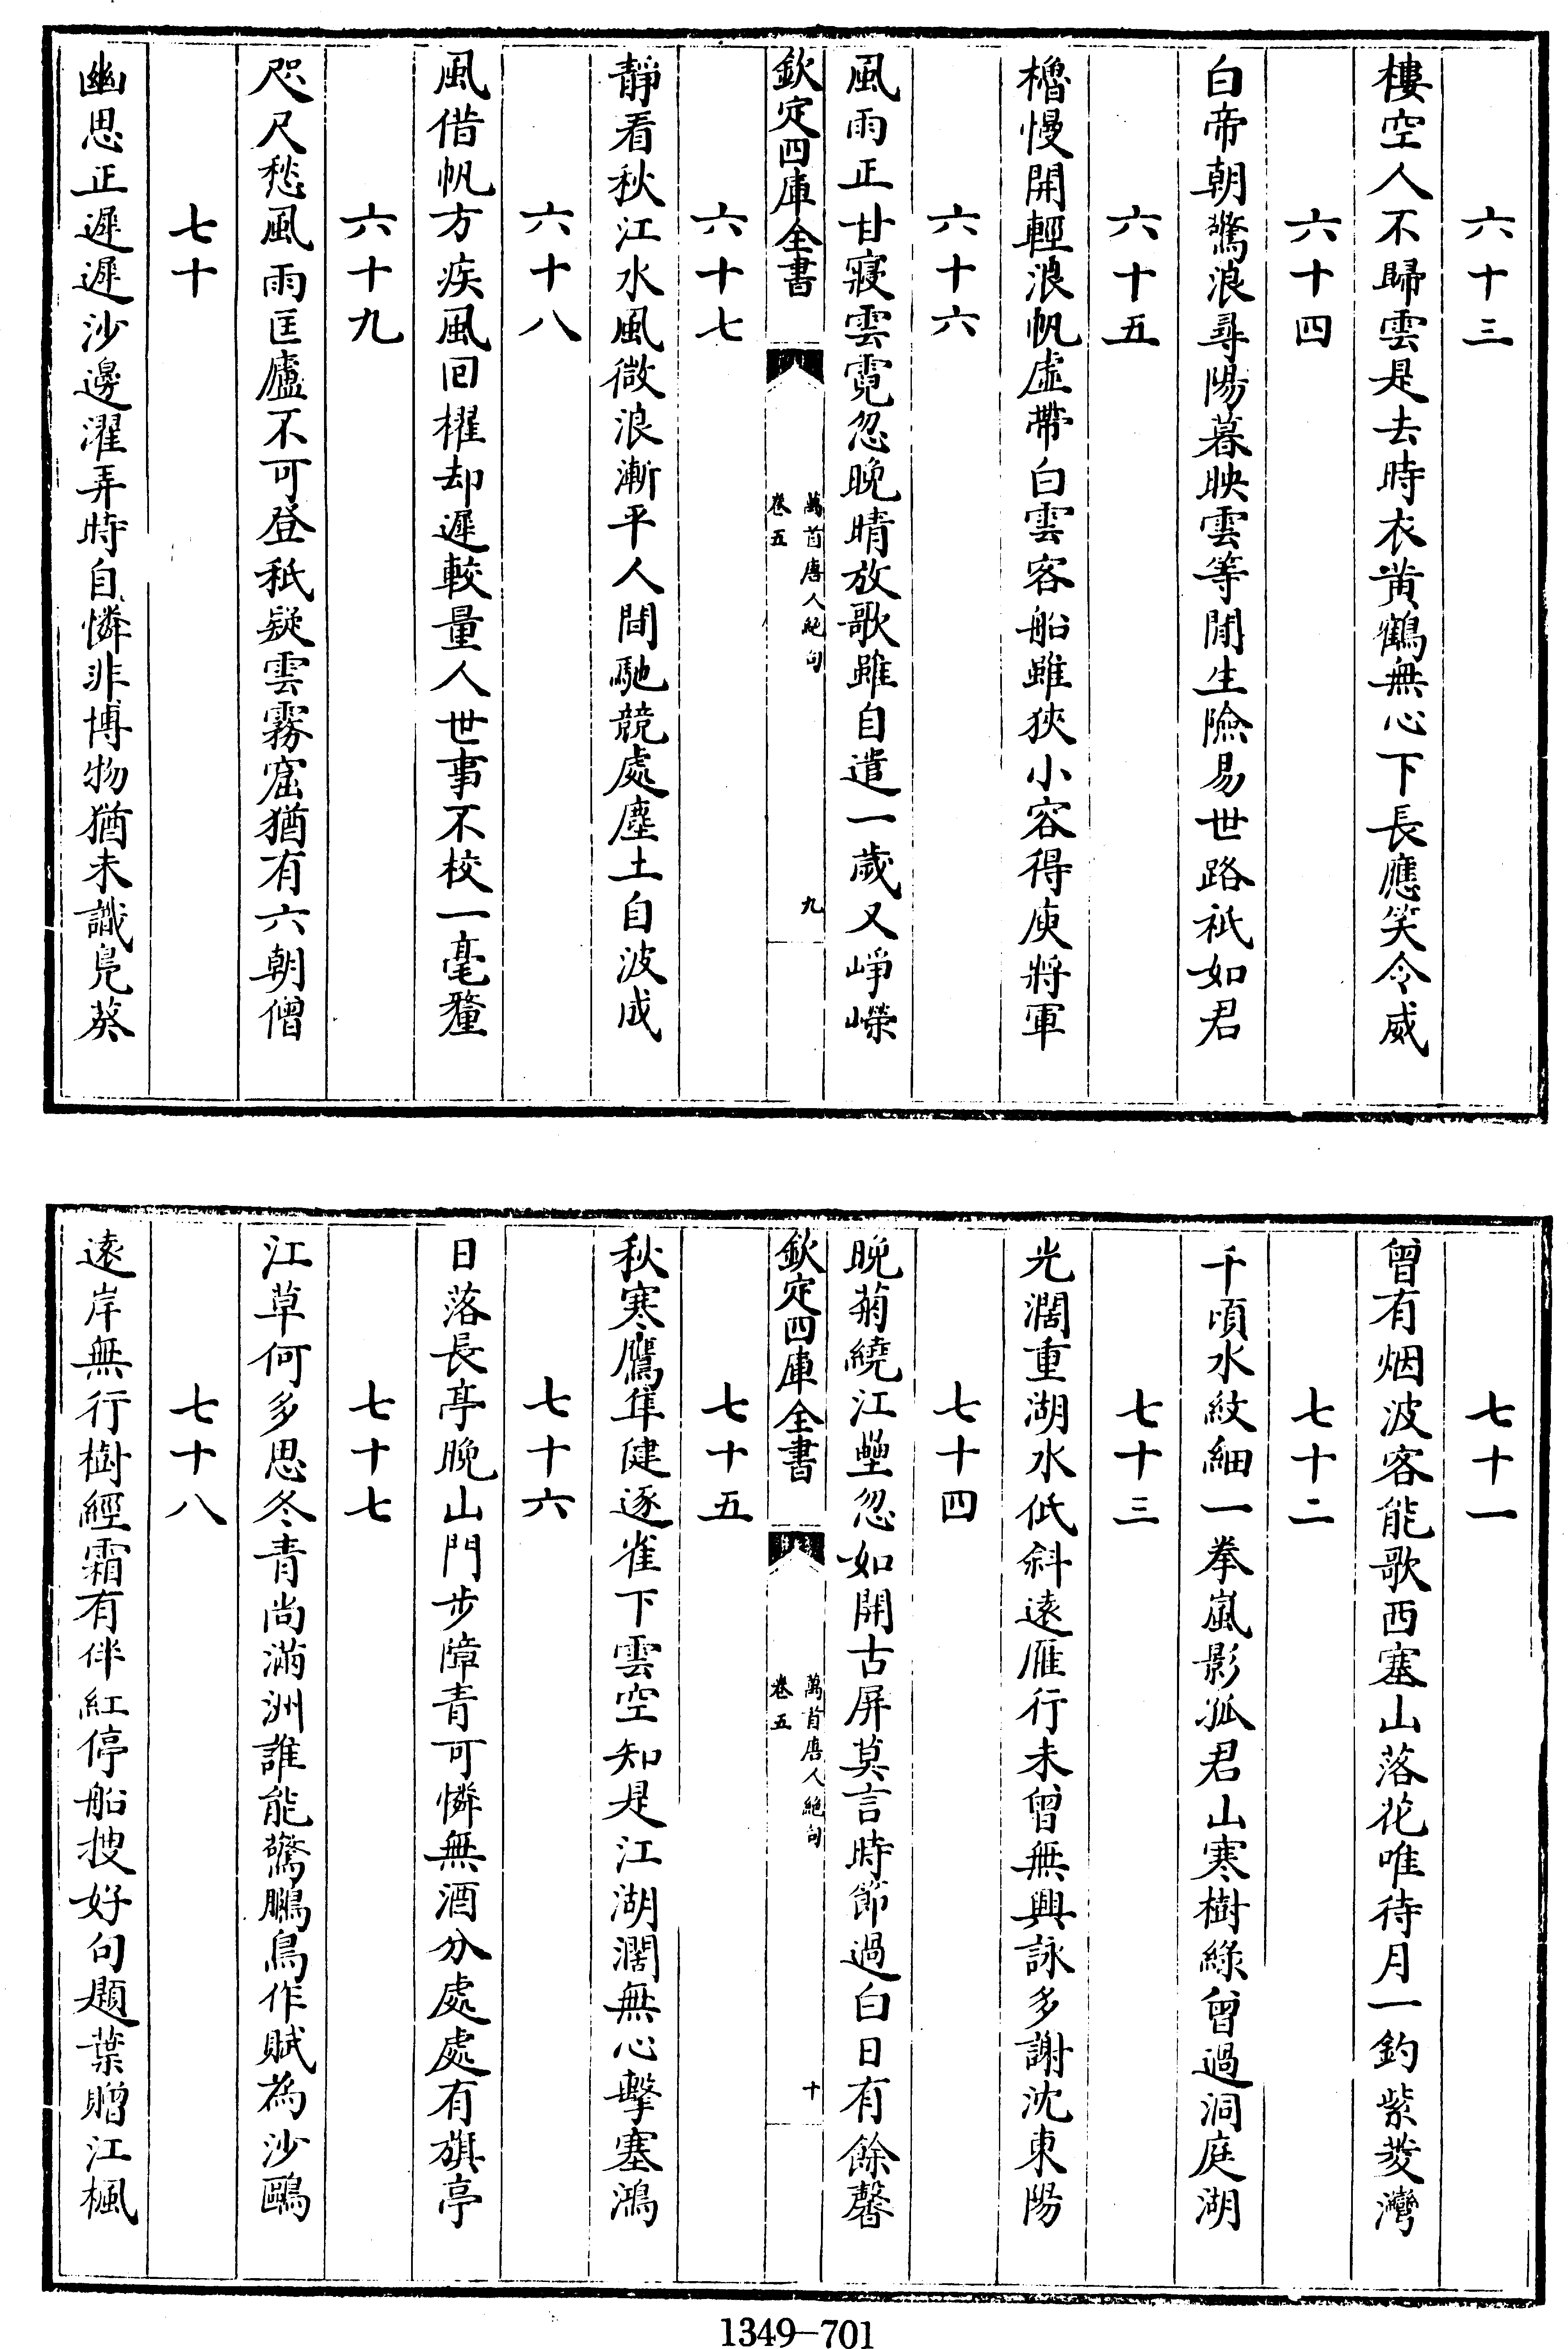 六十三
樓空人不歸雲是去時衣黄鶴無心下長應笑令威
六十四
白帝朝驚浪尋陽暮映雲等閒生險易世路祇如君
六十五
櫓慢開輕浪帆虛帶白雲客船雖狹小容得庾將軍
六十六
風雨正甘寢雲霓忽晚晴放歌雖自遣一歲又崢嶸
欽定四庫全書
萬首唐人絶句
卷五
九
六十七
靜看秋江水風微浪漸平人間馳競處塵土自波成
六十八
風借帆方疾風回櫂却遲較量人世事不校一毫釐
六十九
咫尺愁風雨匡廬不可登秖疑雲霧窟猶有六朝僧
七十
幽思正遲遲沙邊濯弄時自憐非博物猶未識鳬葵
七十一
曾有烟波客能歌西塞山落花唯待月一釣紫菱灣
七十二
千頃水紋細一拳嵐影孤君山寒樹綠曾過洞庭湖
七十三
光濶重湖水低斜遠雁行未曾無興詠多謝沈東陽
七十四
晚菊繞江壘忽如開古屏莫言時節過白日有餘馨
欽定四庫全書
萬首唐人絶句
卷五
十
七十五
秋寒鷹隼健逐雀下雲空知是江湖濶無心擊塞鴻
七十六
日落長亭晚山門步障青可憐無酒分處處有旗亭
七十七
江草何多思冬青尚滿洲誰能驚鵩鳥作賦為沙鷗
七十八
遠岸無行樹經霜有伴紅停船搜好句題葉贈江楓
1349—701